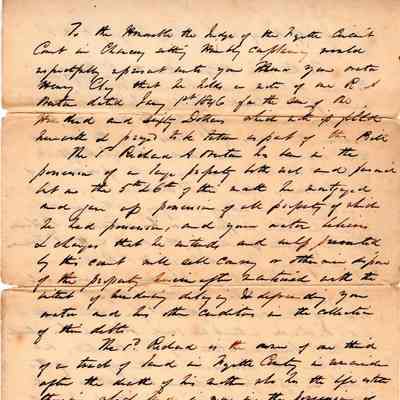 To the Honorable the Judge of the Fayette Circuit
Court in Chancery sitting Humbly complaining would
respectfully represent unto your Honor your orator
Henry Clay that he holds a note of one R. A.
dated Jany 1st 1846 for the sum of
Hundred and Sixty Dollars which note is filed
herewith & prayed to be taken as part of this Bill
The sd Richard A. has been in the
possession of a large property both real and personal
but on the 5th & 6th of this month he mortgaged
and gave up possession of all property of which
he had possession, and your orator believes
& charges that he intends and unless prevented
by this court will sell convey or otherwise dispose
of the property herein after mentioned with the
intent of hindering delaying & defrauding your
orator and his other creditors in the collection
of their debts.
The sd Richard is the owner of one third
of a tract of land in Fayette County in remainder
after the death of his mother who has the life estate
therein which land is now in the possession of